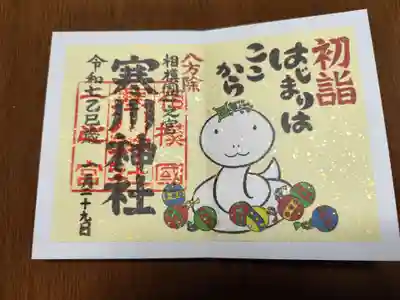 初詣
はじまりは
ここ
から
八方除
相模國一之宮
寒川神社
令和七乙巳歳
一月二十九日